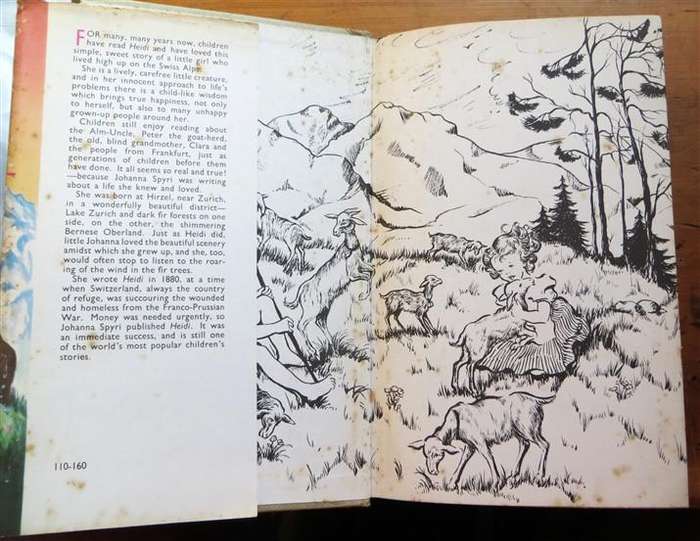 FOR many, many years now, children
have read Heidi and have loved this
simple, sweet story of a little girl who
lived high up on the Swiss Alps.
She is a lively, carefree little creature,
and in her innocent approach to life's
problems there is a child-like wisdom
which brings true happiness, not only
to herself, but also to many unhappy
grown-up people around her.
Children still enjoy reading about
the Alm-Uncle, Peter the goat-herd,
the old, blind grandmother, Clara and
the people from Frankfurt, just as
generations of children before them
have done. It all seems so real and true!
—because Johanna Spyri was writing
about a life she knew and loved.
She was born at Hirzel, near Zurich,
in a wonderfully beautiful district—
Lake Zurich and dark fir forests on one
side, on the other, the shimmering
Bernese Oberland. Just as Heidi did,
little Johanna loved the beautiful scenery
amidst which she grew up, and she, too,
would often stop to listen to the roar-
ing of the wind in the fir trees.
She wrote Heidi in 1880, at a time
when Switzerland, always the country
of refuge, was succouring the wounded
and homeless from the Franco-Prussian
War. Money was needed urgently, so
Johanna Spyri published Heidi. It was
an immediate success, and is still one
of the world's most popular children's
stories.
110-160